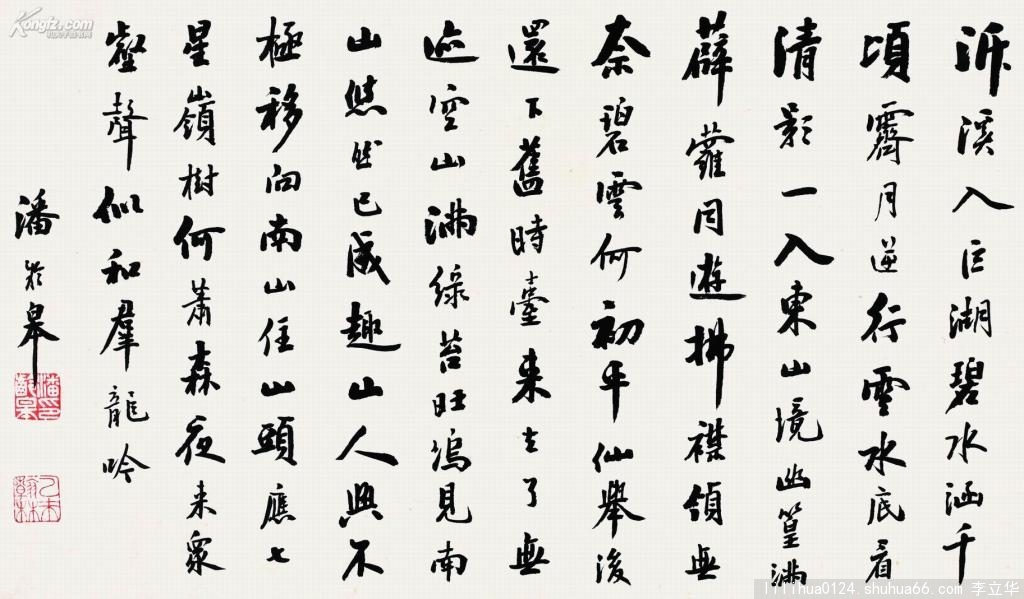 泝溪入巨湖碧水涵千
頃霽月逆行雲水底看
清影一入東山境幽篁滿
薜蘿同遊拂襟領無
奈碧雲何初平仙舉後
還下舊時臺來去了無
迹空山滿綠苔旺塢見南
山悠然已成趣山人興不
極移向南山住山頭應七
星嶺樹何蕭森夜来衆
壑聲似和羣龍吟
潘齡皋
潘印齡皋
乙未翰林
Kongfz.com
孔夫子旧书网
shuhua66.com 李立华